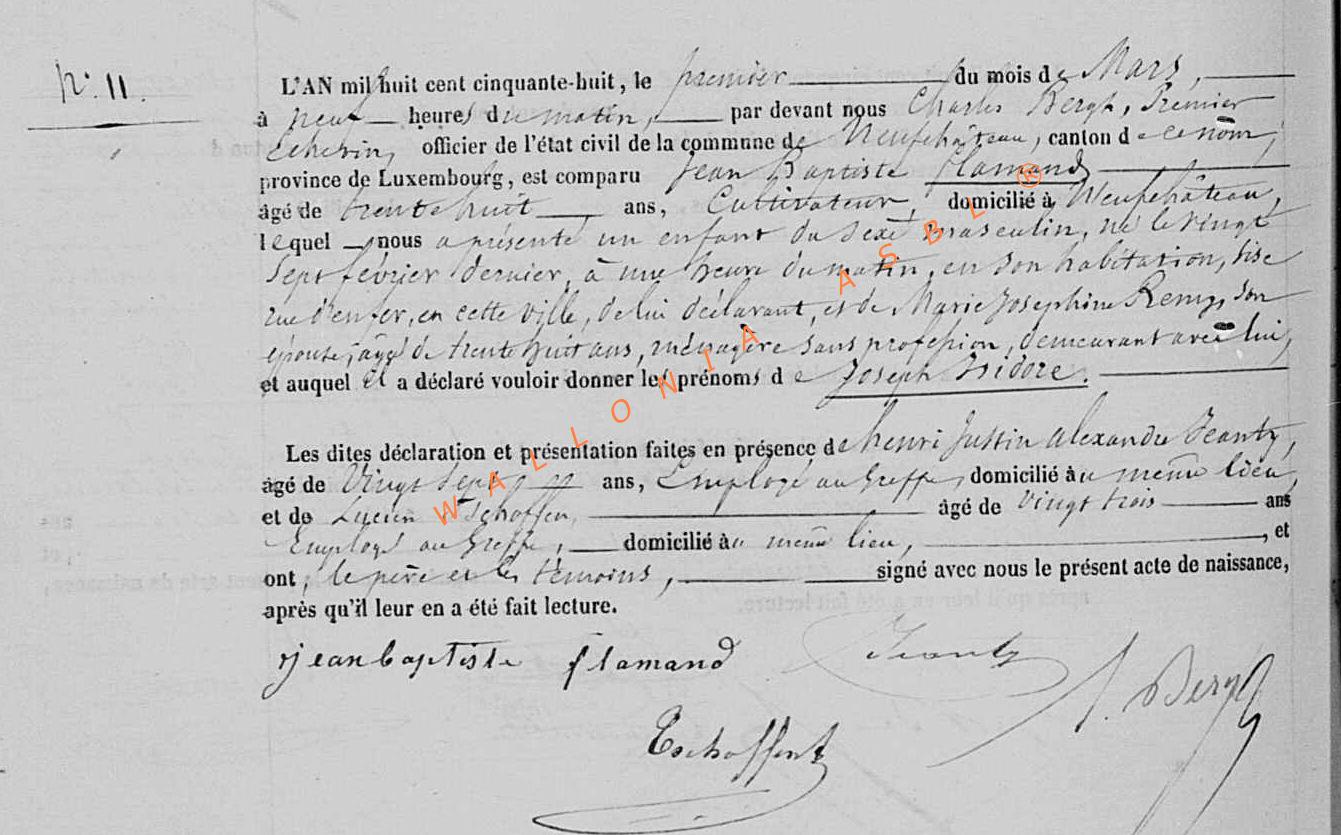 N° 11.
L'AN mil huit cent cinquante-huit, le premier du mois de Mars,
à neuf heures du matin, par devant nous Charles Bergh, Premier
Echevin, officier de l'état civil de la commune de Neufchâteau, canton de ce nom,
province de Luxembourg, est comparu Jean Baptiste flamand
âgé de trente huit ans, Cultivateur, domicilié à Neufchâteau,
lequel nous a présenté un enfant du sexe masculin, né le vingt
sept février dernier, à une heure du matin, en son habitation, sise
rue d'enfer, en cette ville, de lui déclarant, et de Marie Josephine Remy, son
épouse, âgée de trente huit ans, ménagère sans profession, demeurant avec lui,
et auquel il a déclaré vouloir donner les prénoms de Joseph Isidore.
Les dites déclaration et présentation faites en présence de henri Justin alexandre Jeanty,
âgé de Vingt Sept ans, Employé au Greffe, domicilié au même lieu,
et de Lucien Tschoffen, âgé de vingt trois ans
Employé au Greffe, domicilié au même lieu, , et
ont, le père et les témoins, signé avec nous le présent acte de naissance,
après qu'il leur en a été fait lecture.
jean baptiste flamand Jeanty Bergh
Tschoffen
WALLONIA ASBL ®